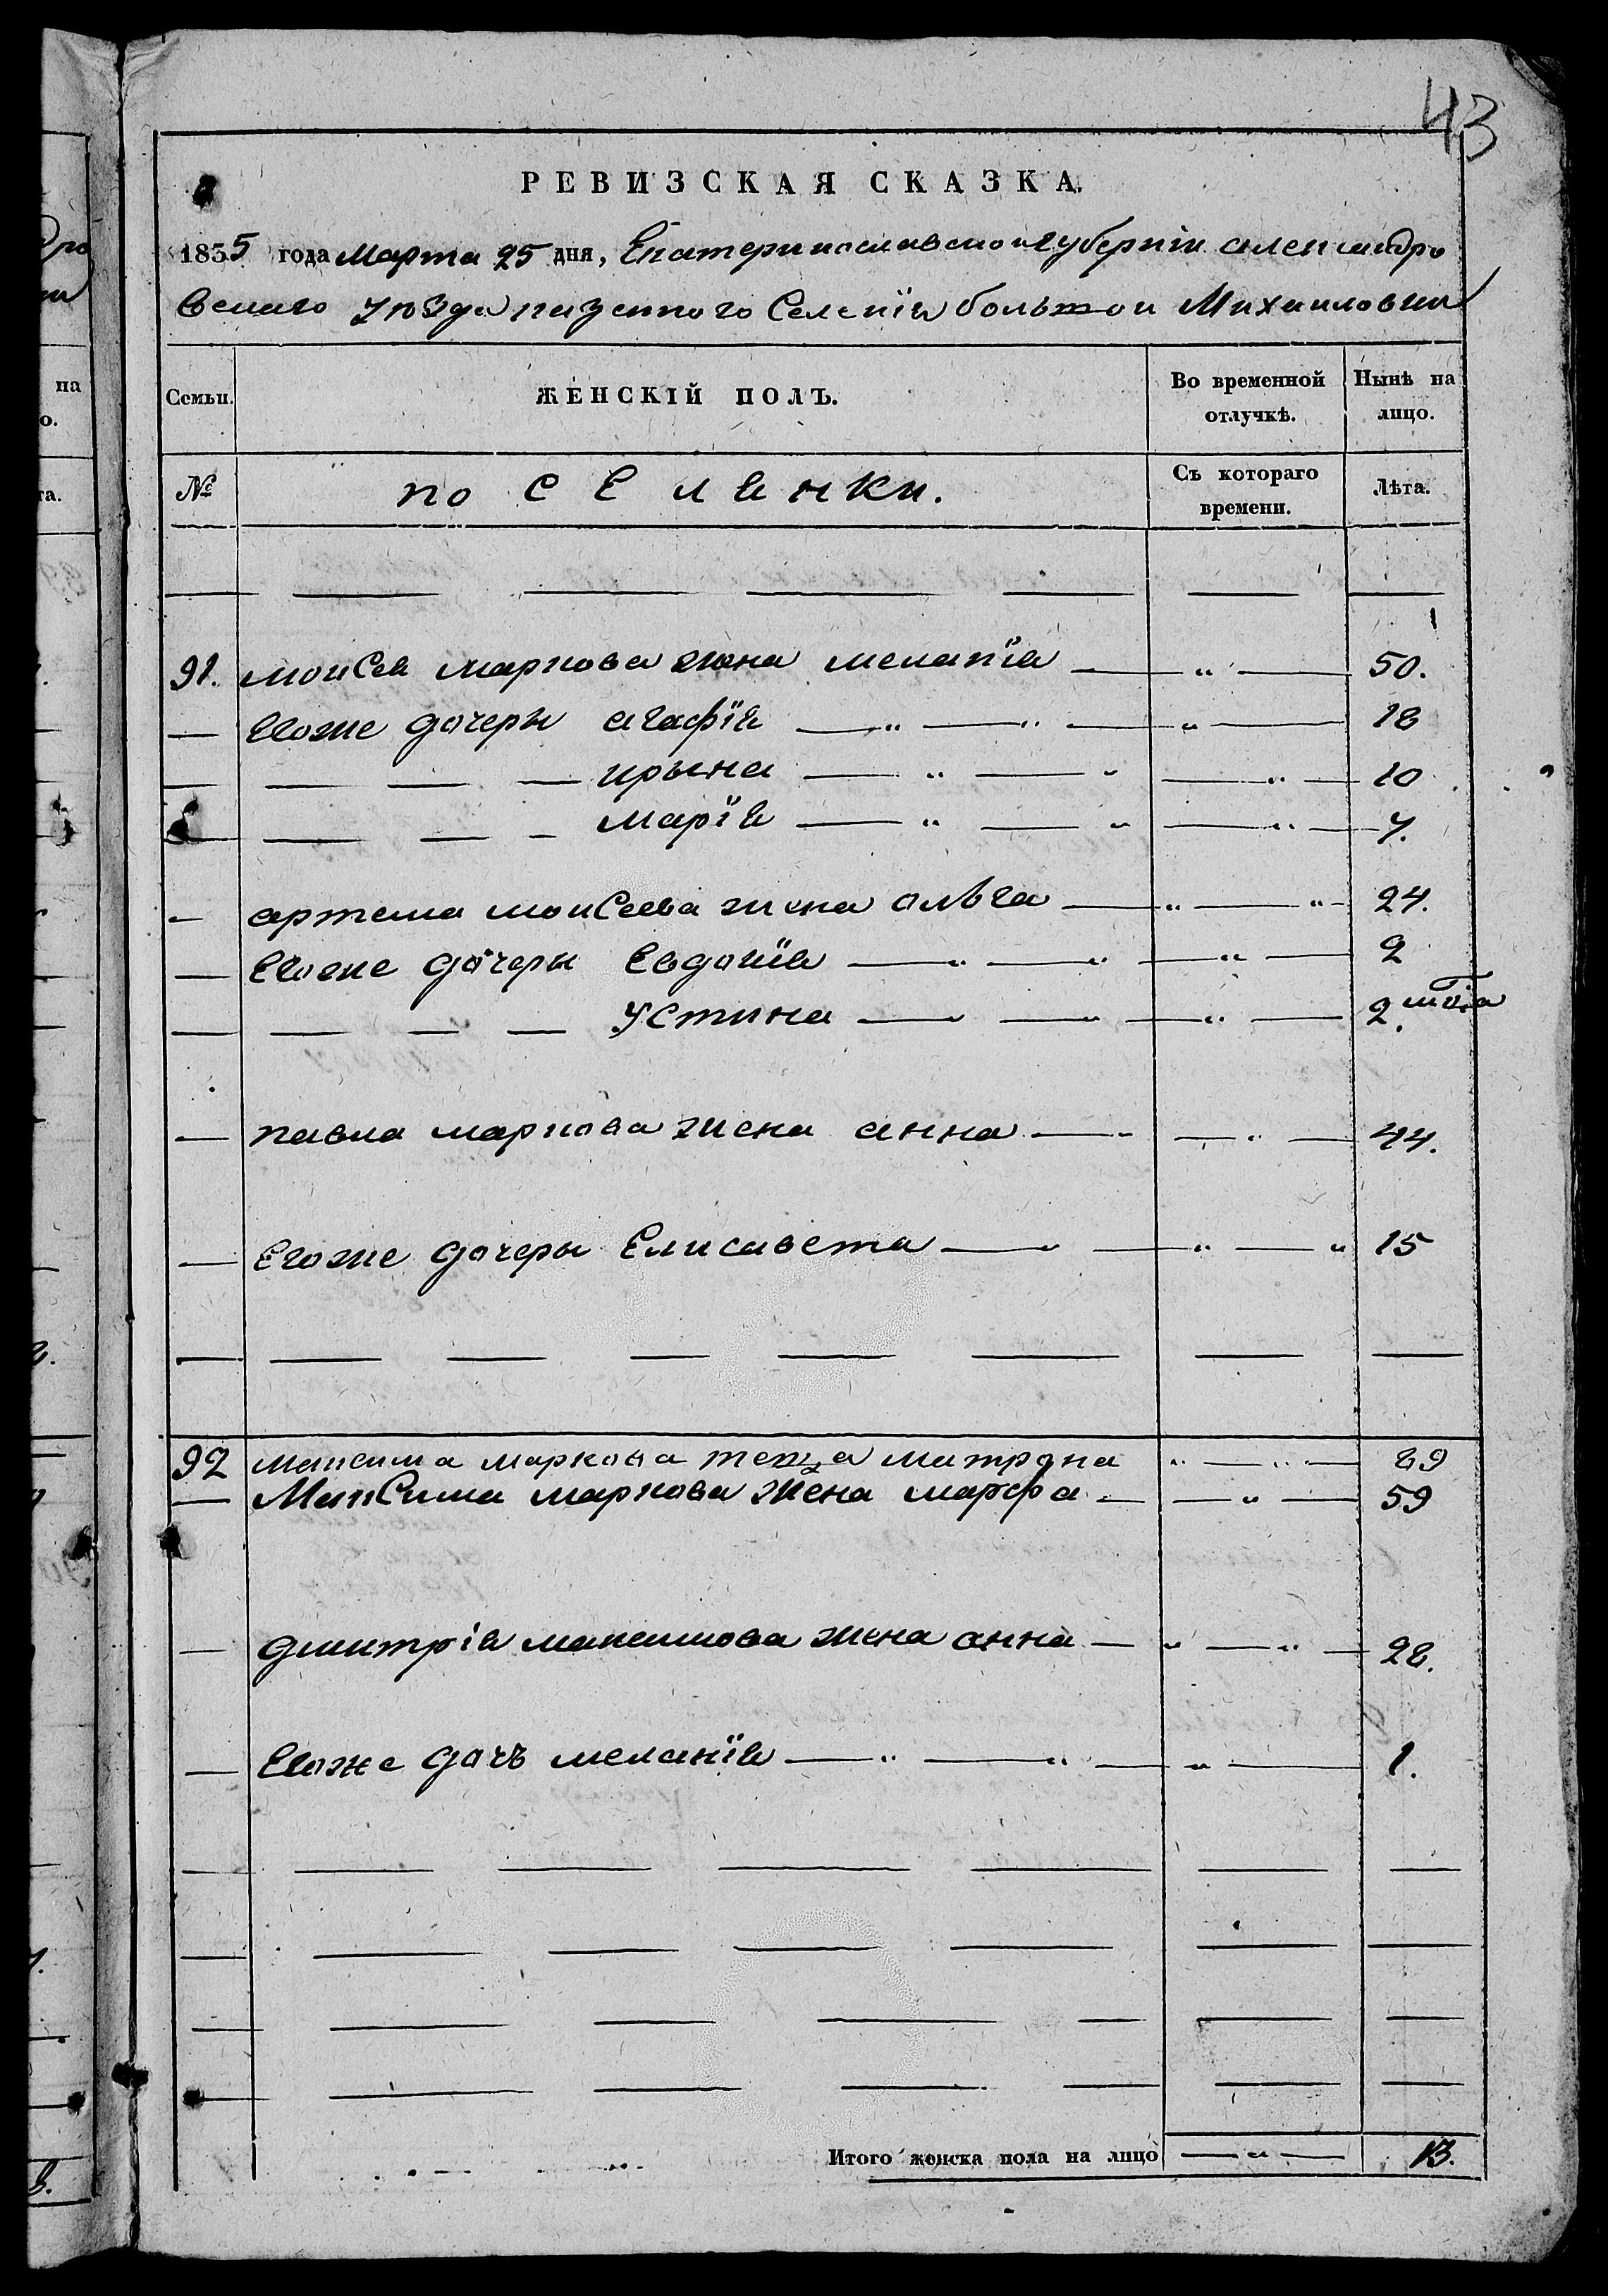 43
РЕВИЗСКАЯ СКАЗКА.
1835 года Марта 25 дня, Екатеринославской губернiи александро
вскаго уѣзда казенного Селенiя большой Михаиловки
Семьи. ЖЕНСКІЙ ПОЛЪ. Во временной отлучкѣ. Нынѣ на лицо.
№ поселянки. Съ котораго времени. Лѣта.
91. моисея маркова жена меланiя — " — 50.
— Егоже дочеры агафiя — " — " — " — 18
— — — — ирына — " — " — " — 10
— — — — марiя — " — " — " — 7.
— артема моисеева жена олѣга — " — " — 24.
— Егоже дочеры Евдокiя — " — " — " — 2
— — — — устина — " — " — " — 2.
— павла маркова жена анна — " — " — 44.
— Егоже дочеры Елисавета — " — " — " 15
92 максима маркова теща матрона " — " — 89
— МакСима маркова жена марфа — — " — 59
— дмитрiя максимова жена анна — " — " — 28.
— Егоже дочъ меланiя — " — " — " — 1.
Итого женска пола на лицо — " — 13.